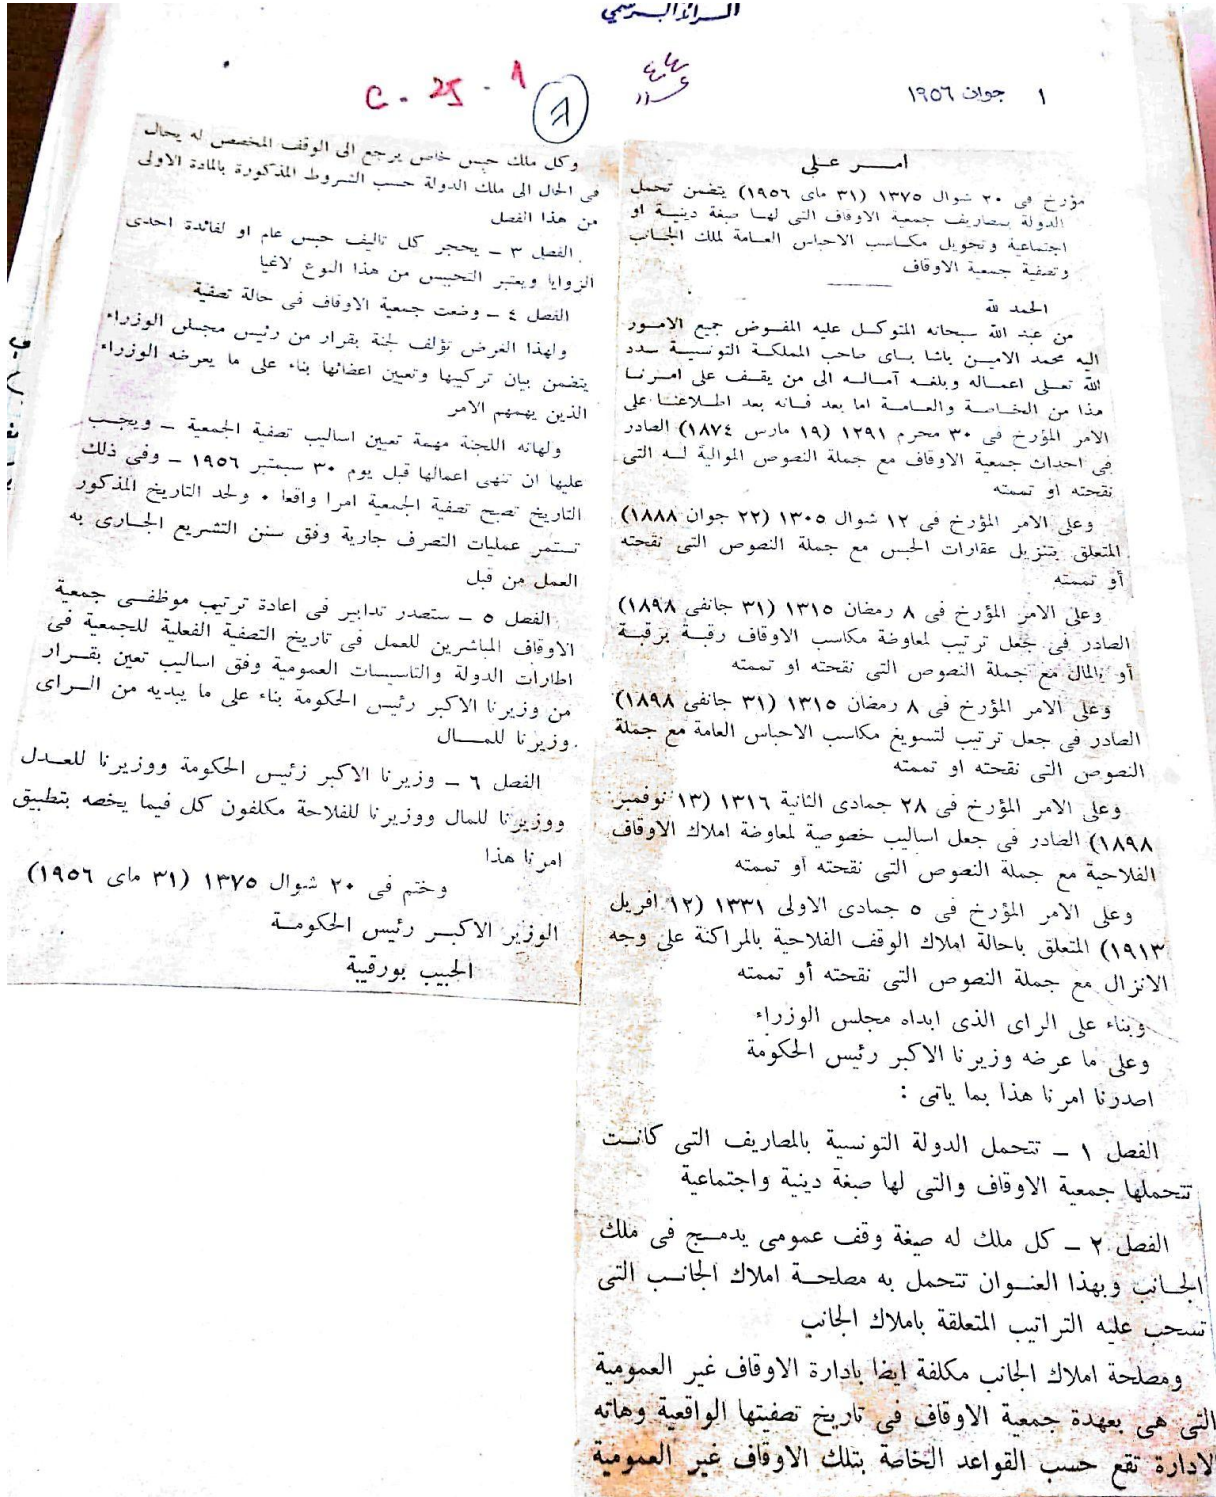 الرائد الرسمي
١ جوان ١٩٥٦
عدد ٤٤
C - 25 - 1
1
امر علي
مؤرخ فى ٢٠ شوال ١٣٧٥ (٣١ ماى ١٩٥٦) يتضمن تحمل
الدولة بمصاريف جمعية الاوقاف التى لها صبغة دينية او
اجتماعية وتحويل مكاسب الاحباس العامة لملك الجانب
وتصفية جمعية الاوقاف
الحمد لله
من عبد الله سبحانه المتوكل عليه المفوض جميع الامور
اليه محمد الامين باشا باى صاحب المملكة التونسية سدد
الله تعلى اعماله وبلغه آماله الى من يقف على امرنا
هذا من الخاصة والعامة اما بعد فانه بعد اطلاعنا على
الامر المؤرخ فى ٣٠ محرم ١٢٩١ (١٩ مارس ١٨٧٤) الصادر
فى احداث جمعية الاوقاف مع جملة النصوص الموالية له التى
نقحته او تممته
وعلى الامر المؤرخ فى ١٢ شوال ١٣٠٥ (٢٢ جوان ١٨٨٨)
المتعلق بتنزيل عقارات الحبس مع جملة النصوص التى نقحته
أو تممته
وعلى الامر المؤرخ فى ٨ رمضان ١٣١٥ (٣١ جانفى ١٨٩٨)
الصادر فى جعل ترتيب لمعاوضة مكاسب الاوقاف رقبة برقبة
أو بالمال مع جملة النصوص التى نقحته او تممته
وعلى الامر المؤرخ فى ٨ رمضان ١٣١٥ (٣١ جانفى ١٨٩٨)
الصادر فى جعل ترتيب لتسويغ مكاسب الاحباس العامة مع جملة
النصوص التى نقحته او تممته
وعلى الامر المؤرخ فى ٢٨ جمادى الثانية ١٣١٦ (١٣ نوفمبر
١٨٩٨) الصادر فى جعل اساليب خصوصية لمعاوضة املاك الاوقاف
الفلاحية مع جملة النصوص التى نقحته أو تممته
وعلى الامر المؤرخ فى ٥ جمادى الاولى ١٣٣١ (١٢ افريل
١٩١٣) المتعلق باحالة املاك الوقف الفلاحية بالمراكنة على وجه
الانزال مع جملة النصوص التى نقحته أو تممته
وبناء على الراى الذى ابداه مجلس الوزراء
وعلى ما عرضه وزيرنا الاكبر رئيس الحكومة
اصدرنا امرنا هذا بما ياتى :
الفصل ١ ـ تتحمل الدولة التونسية بالمصاريف التى كانت
تتحملها جمعية الاوقاف والتى لها صبغة دينية واجتماعية
الفصل ٢ ـ كل ملك له صبغة وقف عمومى يدمج فى ملك
الجانب وبهذا العنوان تتحمل به مصلحة املاك الجانب التى
تسحب عليه التراتيب المتعلقة باملاك الجانب
ومصلحة املاك الجانب مكلفة ايضا بادارة الاوقاف غير العمومية
التى هى بعهدة جمعية الاوقاف فى تاريخ تصفيتها الواقعية وهاته
الادارة تقع حسب القواعد الخاصة بتلك الاوقاف غير العمومية
وكل ملك حبس خاص يرجع الى الوقف المخصص له يحال
فى الحال الى ملك الدولة حسب الشروط المذكورة بالمادة الاولى
من هذا الفصل
الفصل ٣ ـ يحجر كل تاليف حبس عام او لفائدة احدى
الزوايا ويعتبر التحبيس من هذا النوع لاغيا
الفصل ٤ ـ وضعت جمعية الاوقاف فى حالة تصفية
ولهذا الغرض تؤلف لجنة بقرار من رئيس مجلس الوزراء
يتضمن بيان تركيبها وتعيين اعضائها بناء على ما يعرضه الوزراء
الذين يهمهم الامر
ولهاته اللجنة مهمة تعيين اساليب تصفية الجمعية ـ ويجب
عليها ان تنهى اعمالها قبل يوم ٣٠ سبتمبر ١٩٥٦ ـ وفى ذلك
التاريخ تصبح تصفية الجمعية امرا واقعا . ولحد التاريخ المذكور
تستمر عمليات التصرف جارية وفق سنن التشريع الجارى به
العمل من قبل
الفصل ٥ ـ ستصدر تدابير فى اعادة ترتيب موظفى جمعية
الاوقاف المباشرين للعمل فى تاريخ التصفية الفعلية للجمعية فى
اطارات الدولة والتاسيسات العمومية وفق اساليب تعين بقرار
من وزيرنا الاكبر رئيس الحكومة بناء على ما يبديه من الراى
وزيرنا للمال
الفصل ٦ ـ وزيرنا الاكبر رئيس الحكومة ووزيرنا للعدل
ووزيرنا للمال ووزيرنا للفلاحة مكلفون كل فيما يخصه بتطبيق
امرنا هذا
وختم فى ٢٠ شوال ١٣٧٥ (٣١ ماى ١٩٥٦)
الوزير الاكبر رئيس الحكومة
الحبيب بورقيبة